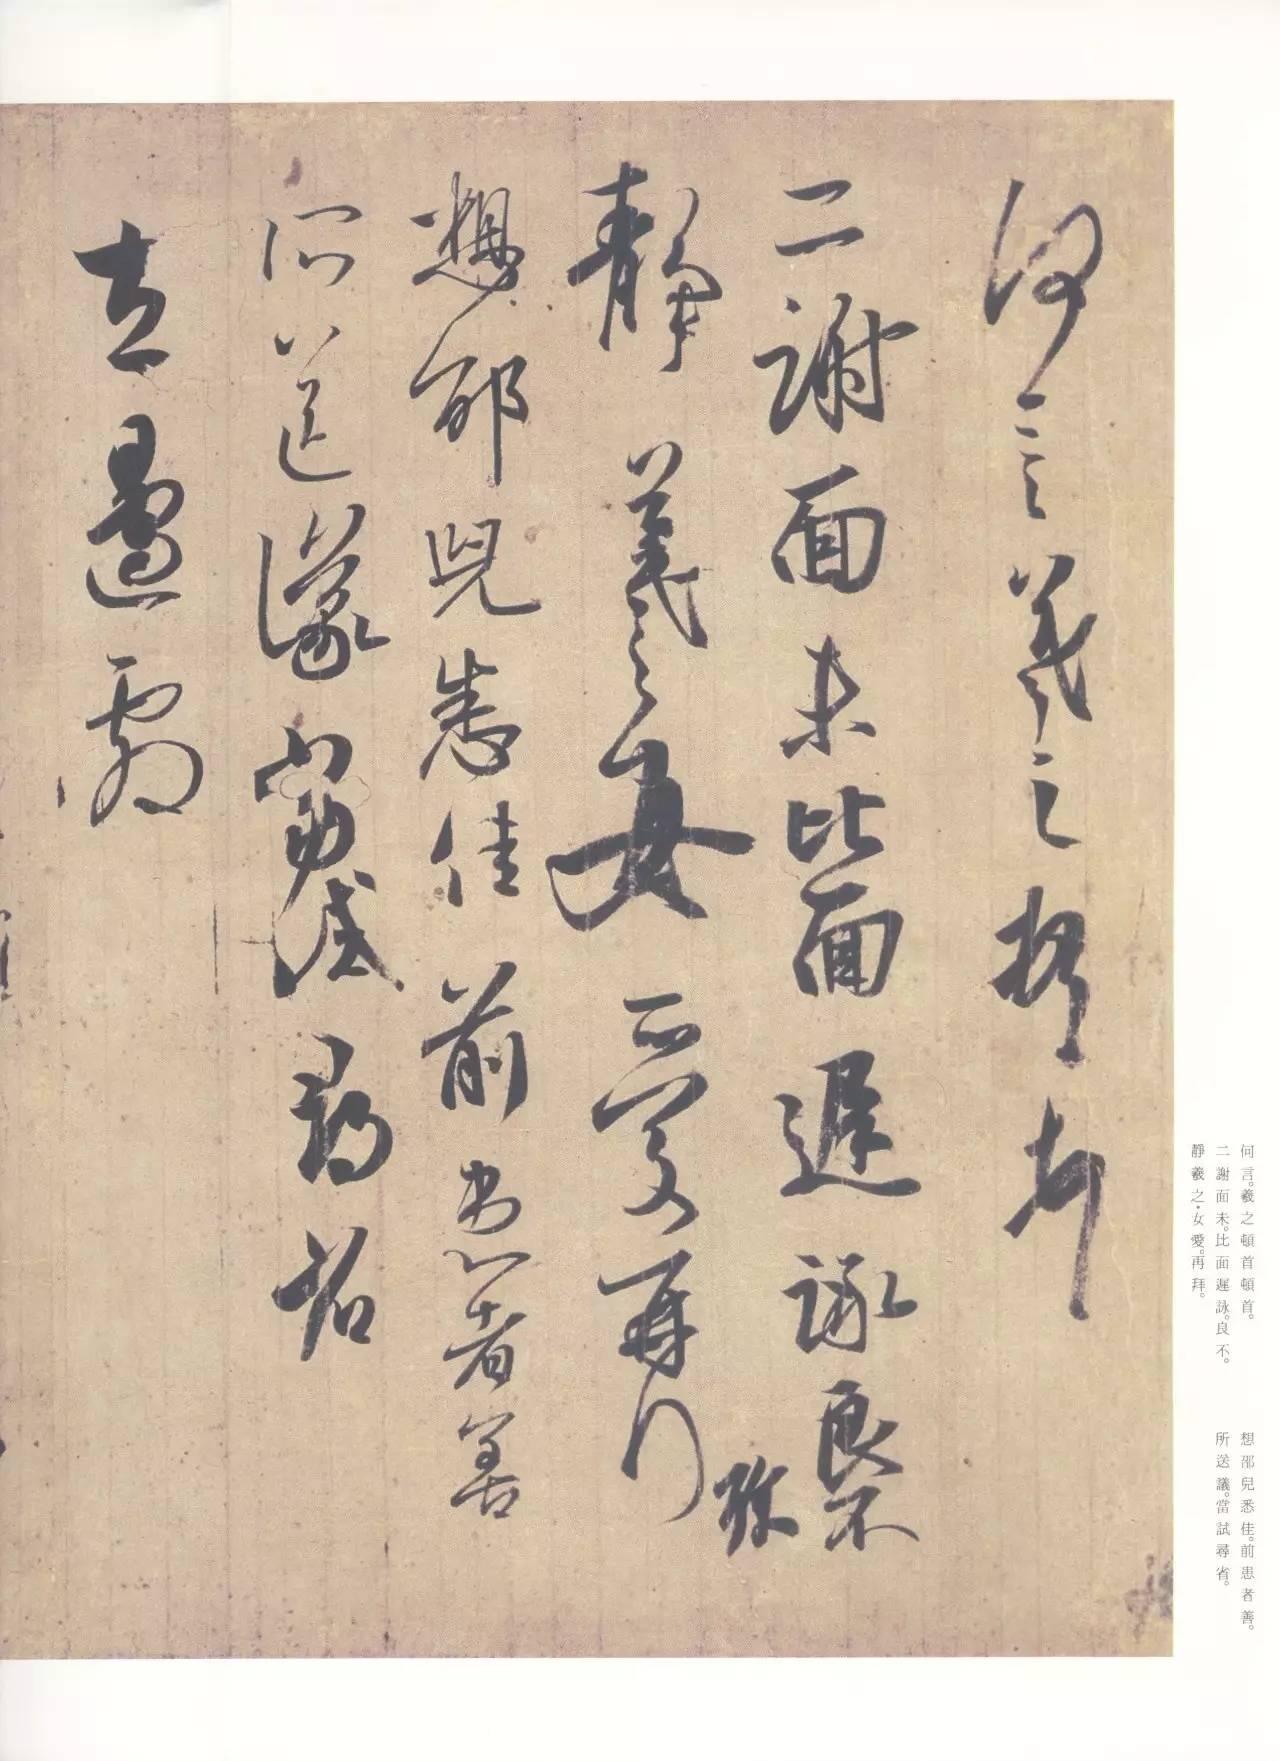 何言羲之頓首頓首
二謝面未比面遲詠良不
靜羲之女愛再拜
珎
想邵兒悉佳前患者善
所送議當試尋省
左邊劇
何言。羲之頓首頓首。
二謝面未。比面遲詠。良不。
靜羲之・女愛。再拜。
想邵兒悉佳。前患者善。
所送議。當試尋省。